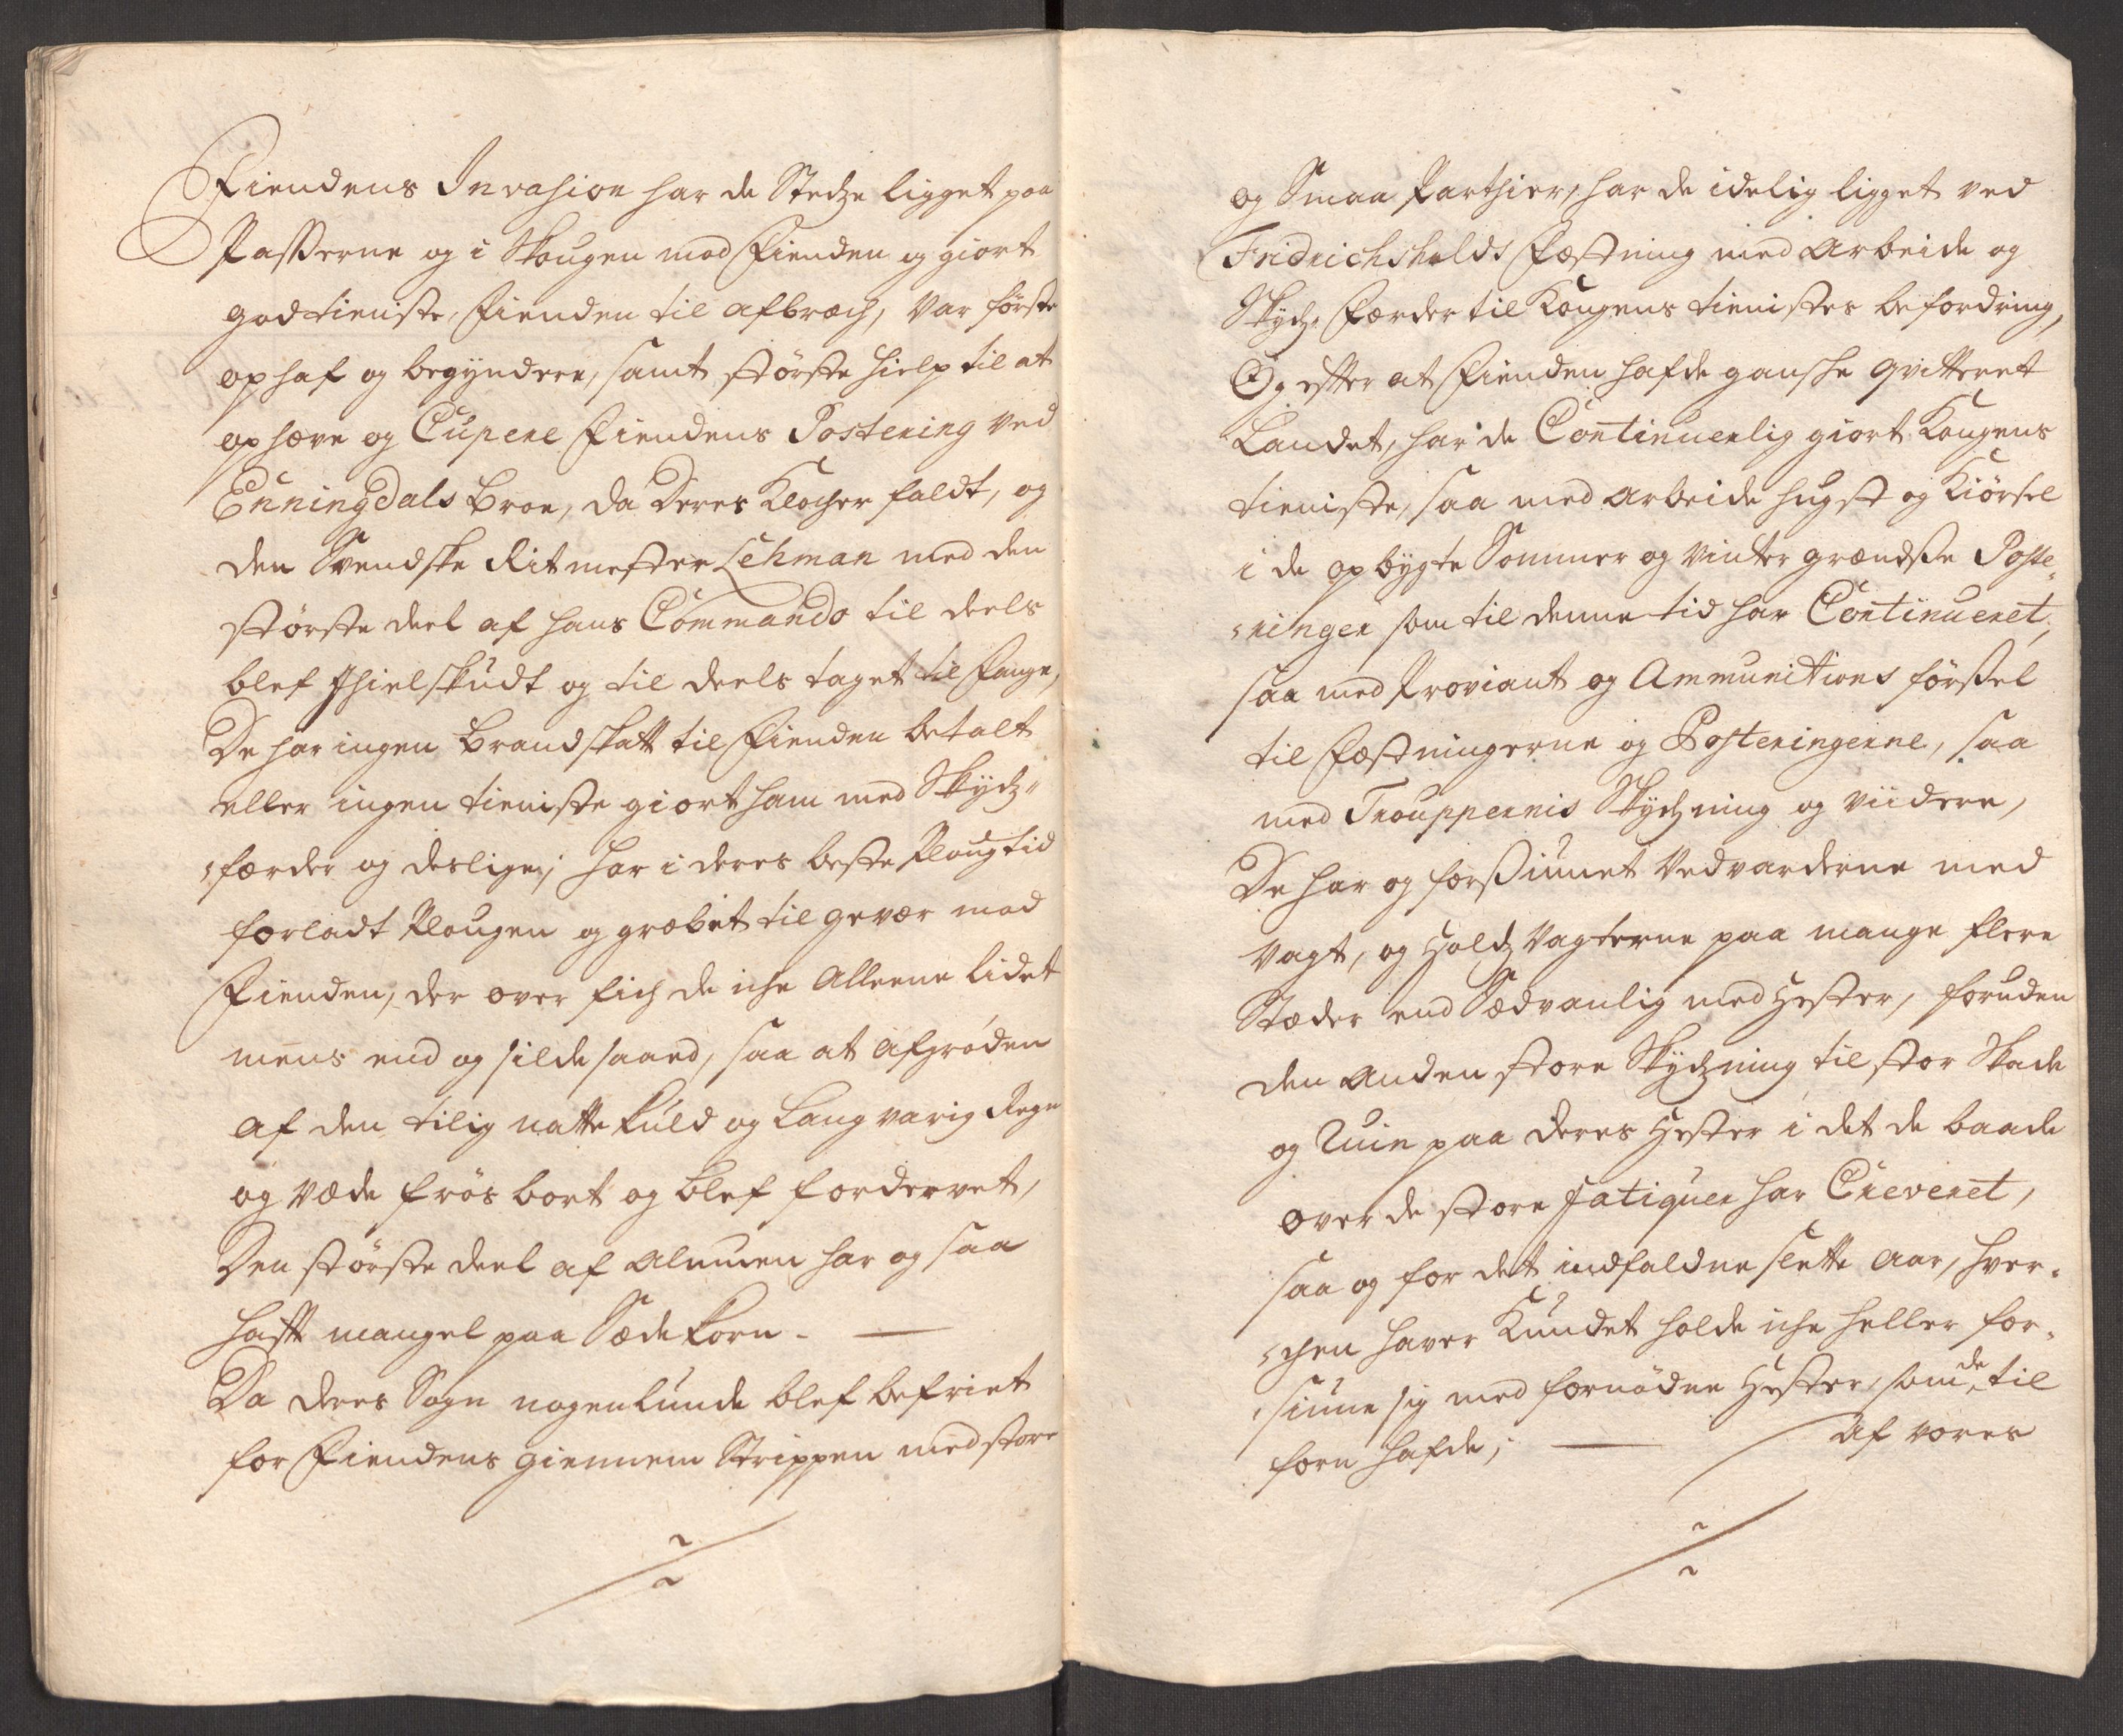 Fiendens Invasion har de Stedze ligget paa
Passerne og i Skougen mod Fienden og giort
god tieniste, Fienden til afbræch, var første
ophaf og begyndere, samt største hielp til at
ophæve og Cupere Fiendens Postering ved
Enningdals Broe, da deres Klocher faldt, og
den Svendske Ritmester Lehman med den
største deel af hans Commando til deels
blef Ihielskudt og til deels taget til Fange,
De har ingen Brandskatt til Fienden betalt
eller ingen tieniste giort ham med Skydz-
færder og deslige; har i deres beste Plougtid
forladt Plougen og grebet til gevær mod
Fienden, der over fich de iche Alleene lidet
mens end og silde saaed, saa at Afgröden
af den tilig natte kuld og Langvarig Regn
og væde frös bort og blef fordervet,
Den største deel af Almuen har og saa
hafft mangel paa Sæde korn. —
Da deres Sogn nogenlunde blef befriet
for Fiendens giennem Strippen med store
og Smaa Parthier, har de idelig ligget ved
Fridrichshalds Fæstning med Arbeide og
Skydz-Færder til Kongens tienistes befordring,
Og efter at Fienden hafde gansche qvitteret
Landet, har de Continuerlig giort Kongens
tieniste, saa med Arbeide hugst og Kiörsel
i de opbygte Sommer og vinter grændse Poste-
ringer som til denne tid har Continueret,
saa med Proviant og Ammunitions förssel
til Fæstningerne og Posteringerne, saa
med Trouppernis Skydzning og viidere,
De har og forssiunet Vedvarderne med
Vagt, og Holdz Vagterne paa mange flere
Stæder end Sædvanlig med Hester, foruden
den anden store Skydzning til stor Skade
og Ruin paa deres Hester i det de baade
over de store Fatiquer har Creveret,
saa og for det indfaldne slette Aar, hver-
chen haver Kundet holde iche heller for-
siune sig med fornödne Hester, som de til
forn hafde; — Af vores